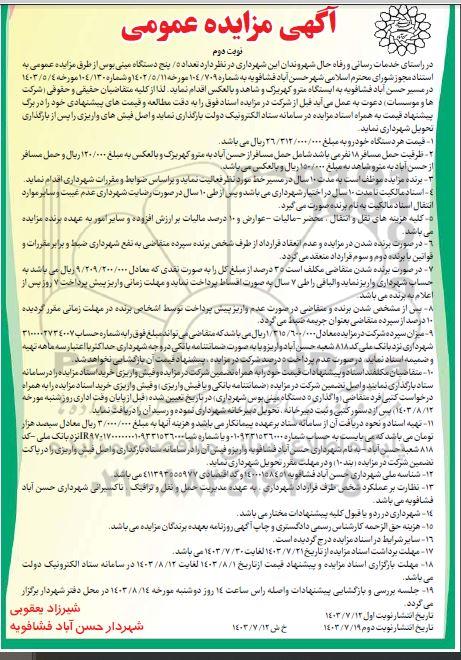 آگهی مزایده عمومی
نوبت دوم
در راستای خدمات رسانی و رفاه حال شهروندان این شهرداری در نظر دارد تعداد ۵/ پنج دستگاه مینی بوس از طرق مزایده عمومی به
استناد مجوز شورای محترم اسلامی شهر حسن آباد فشافویه به شماره ۱۰۴/۷۰۹ مورخه ۱۴۰۲/۵/۱۱ و شماره ۱۰۴/۱۳۰ مورخه ۱۴۰۳/۵/۴
در مسیر حسن آباد فشافویه به ایستگاه مترو کهریزک و شاهد و بالعکس اقدام نماید. لذا از کلیه متقاضیان حقیقی و حقوقی (شرکت
ها و موسسات) دعوت به عمل می آید قبل از شرکت در مزایده اسناد فوق را به دقت مطالعه و قیمت های پیشنهادی خود را در برگ
پیشنهاد قیمت به همراه اسناد مزایده در سامانه ستاد الکترونیک دولت بارگذاری نماید و اصل فیش های واریزی را پس از بارگذاری
تحویل شهرداری نماید.
۱- قیمت هر دستگاه خودرو به مبلغ ۲۶/۳۱۲/۰۰۰/۰۰۰ ریال می باشد.
۲- ظرفیت حمل مسافر ۱۸ نفر می باشد شامل حمل مسافر از حسن آباد به مترو کهریزک و بالعکس به مبلغ ۱۲۰/۰۰۰ ریال و حمل مسافر
از حسن آباد به مترو شاهد به مبلغ ۱۵۰/۰۰۰ ریال و بالعکس می باشد.
۳- برنده مزایده موظف است به مدت ۱۰ سال در مسیر خط مورد نظر فعالیت نماید و براساس ضوابط و مقررات شهرداری اقدام نماید.
۴- اسناد مالکیت تا مدت ۱۰ سال در اختیار شهرداری می باشد و پس از طی ۱۰ سال در صورت رضایت شهرداری عدم غیبت و سایر موارد
انتقال اسناد مالکیت به نام برنده صورت می گیرد.
۵- کلیه هزینه های نقل و انتقال، محضر -مالیات -عوارض و ۱۰ درصد مالیات بر ارزش افزوده و سایر امور به عهده برنده مزایده
می باشد.
۶- در صورت برنده شدن در مزایده و عدم انعقاد قرارداد از طرف شخص برنده سپرده متقاضی به نفع شهرداری ضبط و برابر مقررات و
قوانین با برنده دوم و سوم قرارداد منعقد می گردد.
۷- در صورت برنده شدن متقاضی مکلف است ۳۵ درصد از مبلغ کل را به صورت نقدی که معادل ۹/۲۰۹/۲۰۰/۰۰۰ ریال می باشد به
حساب شهرداری واریز نماید والباقی را طی ۷ سال به صورت اقساط پرداخت نماید و مهلت زمانی واریز پیش پرداخت ۷ روز پس از
اعلام به برنده می باشد.
۸- پس از مشخص شدن برنده و متقاضی در صورت عدم واریز پیش پرداخت توسط اشخاص برنده در مهلت زمانی مقرر گردیده
۱۰ درصد از سپرده متقاضی بعنوان جریمه ضبط می گردد.
۹- میزان سپرده شرکت در مزایده معادل ۱/۳۱۵/۶۰۰/۰۰۰ ریال می باشد که متقاضی می تواند مبلغ فوق را به شماره حساب
شهرداری نزد بانک ملی کد ۸۱۸ شعبه حسن آباد واریز و یا به صورت ضمانتنامه بانکی در وجه شهرداری حداکثر با اعتبار سه ماهه تهیه
و ضمیمه اسناد نماید. در صورت عدم پرداخت ۵ درصد شرکت در مزایده، پیشنهاد قیمت آن بازگشایی نخواهد شد.
۱۰- متقاضیان مکلفند اسناد و پیشنهادات قیمت خود را به همراه تضمین شرکت در مزایده و فیش واریزی خرید اسناد مزایده را در سامانه
ستاد بارگذاری نمایند و اصل تضمین شرکت در مزایده (ضمانتنامه بانکی و یا فیش واریزی) و فیش واریزی خرید اسناد مزایده را به همراه
درخواست کتبی فرد متقاضی (واگذاری ۵ دستگاه مینی بوس شهرداری) در تاریخ تعیین شده (قبل از پایان وقت اداری روز شنبه مورخه
۱۴۰۳/۸/۱۲) پس از دستور کتبی و ثبت دبیرخانه، تحویل دبیرخانه شهرداری نموده و رسید آن را دریافت نماید.
۱۱- تهیه اسناد و نحوه آن از طریق سامانه ستاد برعهده پیمانکار می باشد و هزینه آنها به مبلغ ۳/۰۰۰/۰۰۰ ریال معادل سیصد هزار
تومان می باشد که می بایست به حساب شماره
۸۱۸ شعبه حسن آباد - به نام شهرداری حسن آباد فشافویه واریز و فیش آن را در سامانه ستاد بارگذاری و اصل فیش واریزی را دریافت
تضمین شرکت در مزایده (بند ۱۰) و در مهلت مقرر تحویل شهرداری نماید.
۱۲- شناسه ملی شهرداری حسن آباد فشافویه ۱۴۰۰۰۱۵۸۴۵۱ و کد اقتصادی ۴۱۱۳۹۳۵۵۵۹۷۷ می باشد.
۱۳- نظارت بر عملکرد شخص طرف قرارداد شهرداری، به عهده مدیریت حمل و نقل و ترافیک، تاکسیرانی شهرداری حسن آباد
فشافویه می باشد.
۱۴- شهرداری در رد و یا قبول کلیه پیشنهادات مختار می باشد.
۱۵- هزینه حق الزحمه کارشناس رسمی دادگستری و چاپ آگهی روزنامه بعهده برندگان مزایده می باشد.
۱۶- سایر شرایط در اسناد مزایده درج گردیده است.
۱۷- مهلت برداشت اسناد مزایده از تاریخ ۱۴۰۳/۷/۲۱ لغایت ۱۴۰۳/۷/۳۰ می باشد.
۱۸- مهلت بارگزاری اسناد مزایده و پیشنهاد قیمت از تاریخ ۱۴۰۳/۸/۱ لغایت ۱۴۰۳/۸/۱۲ در سامانه ستاد الکترونیک دولت
می باشد.
۱۹- جلسه بررسی و بازگشایی پیشنهادات واصله راس ساعت ۱۴ روز دوشنبه مورخه ۱۴۰۳/۸/۱۴ در محل دفتر شهردار برگزار
می گردد.
تاریخ انتشار نوبت اول ۱۴۰۳/۷/۱۲
تاریخ انتشار نوبت دوم ۱۴۰۳/۷/۱۹ خ ش ۱۴۰۳/۷/۱۲
شیرزاد یعقوبی
شهردار حسن آباد فشافویه